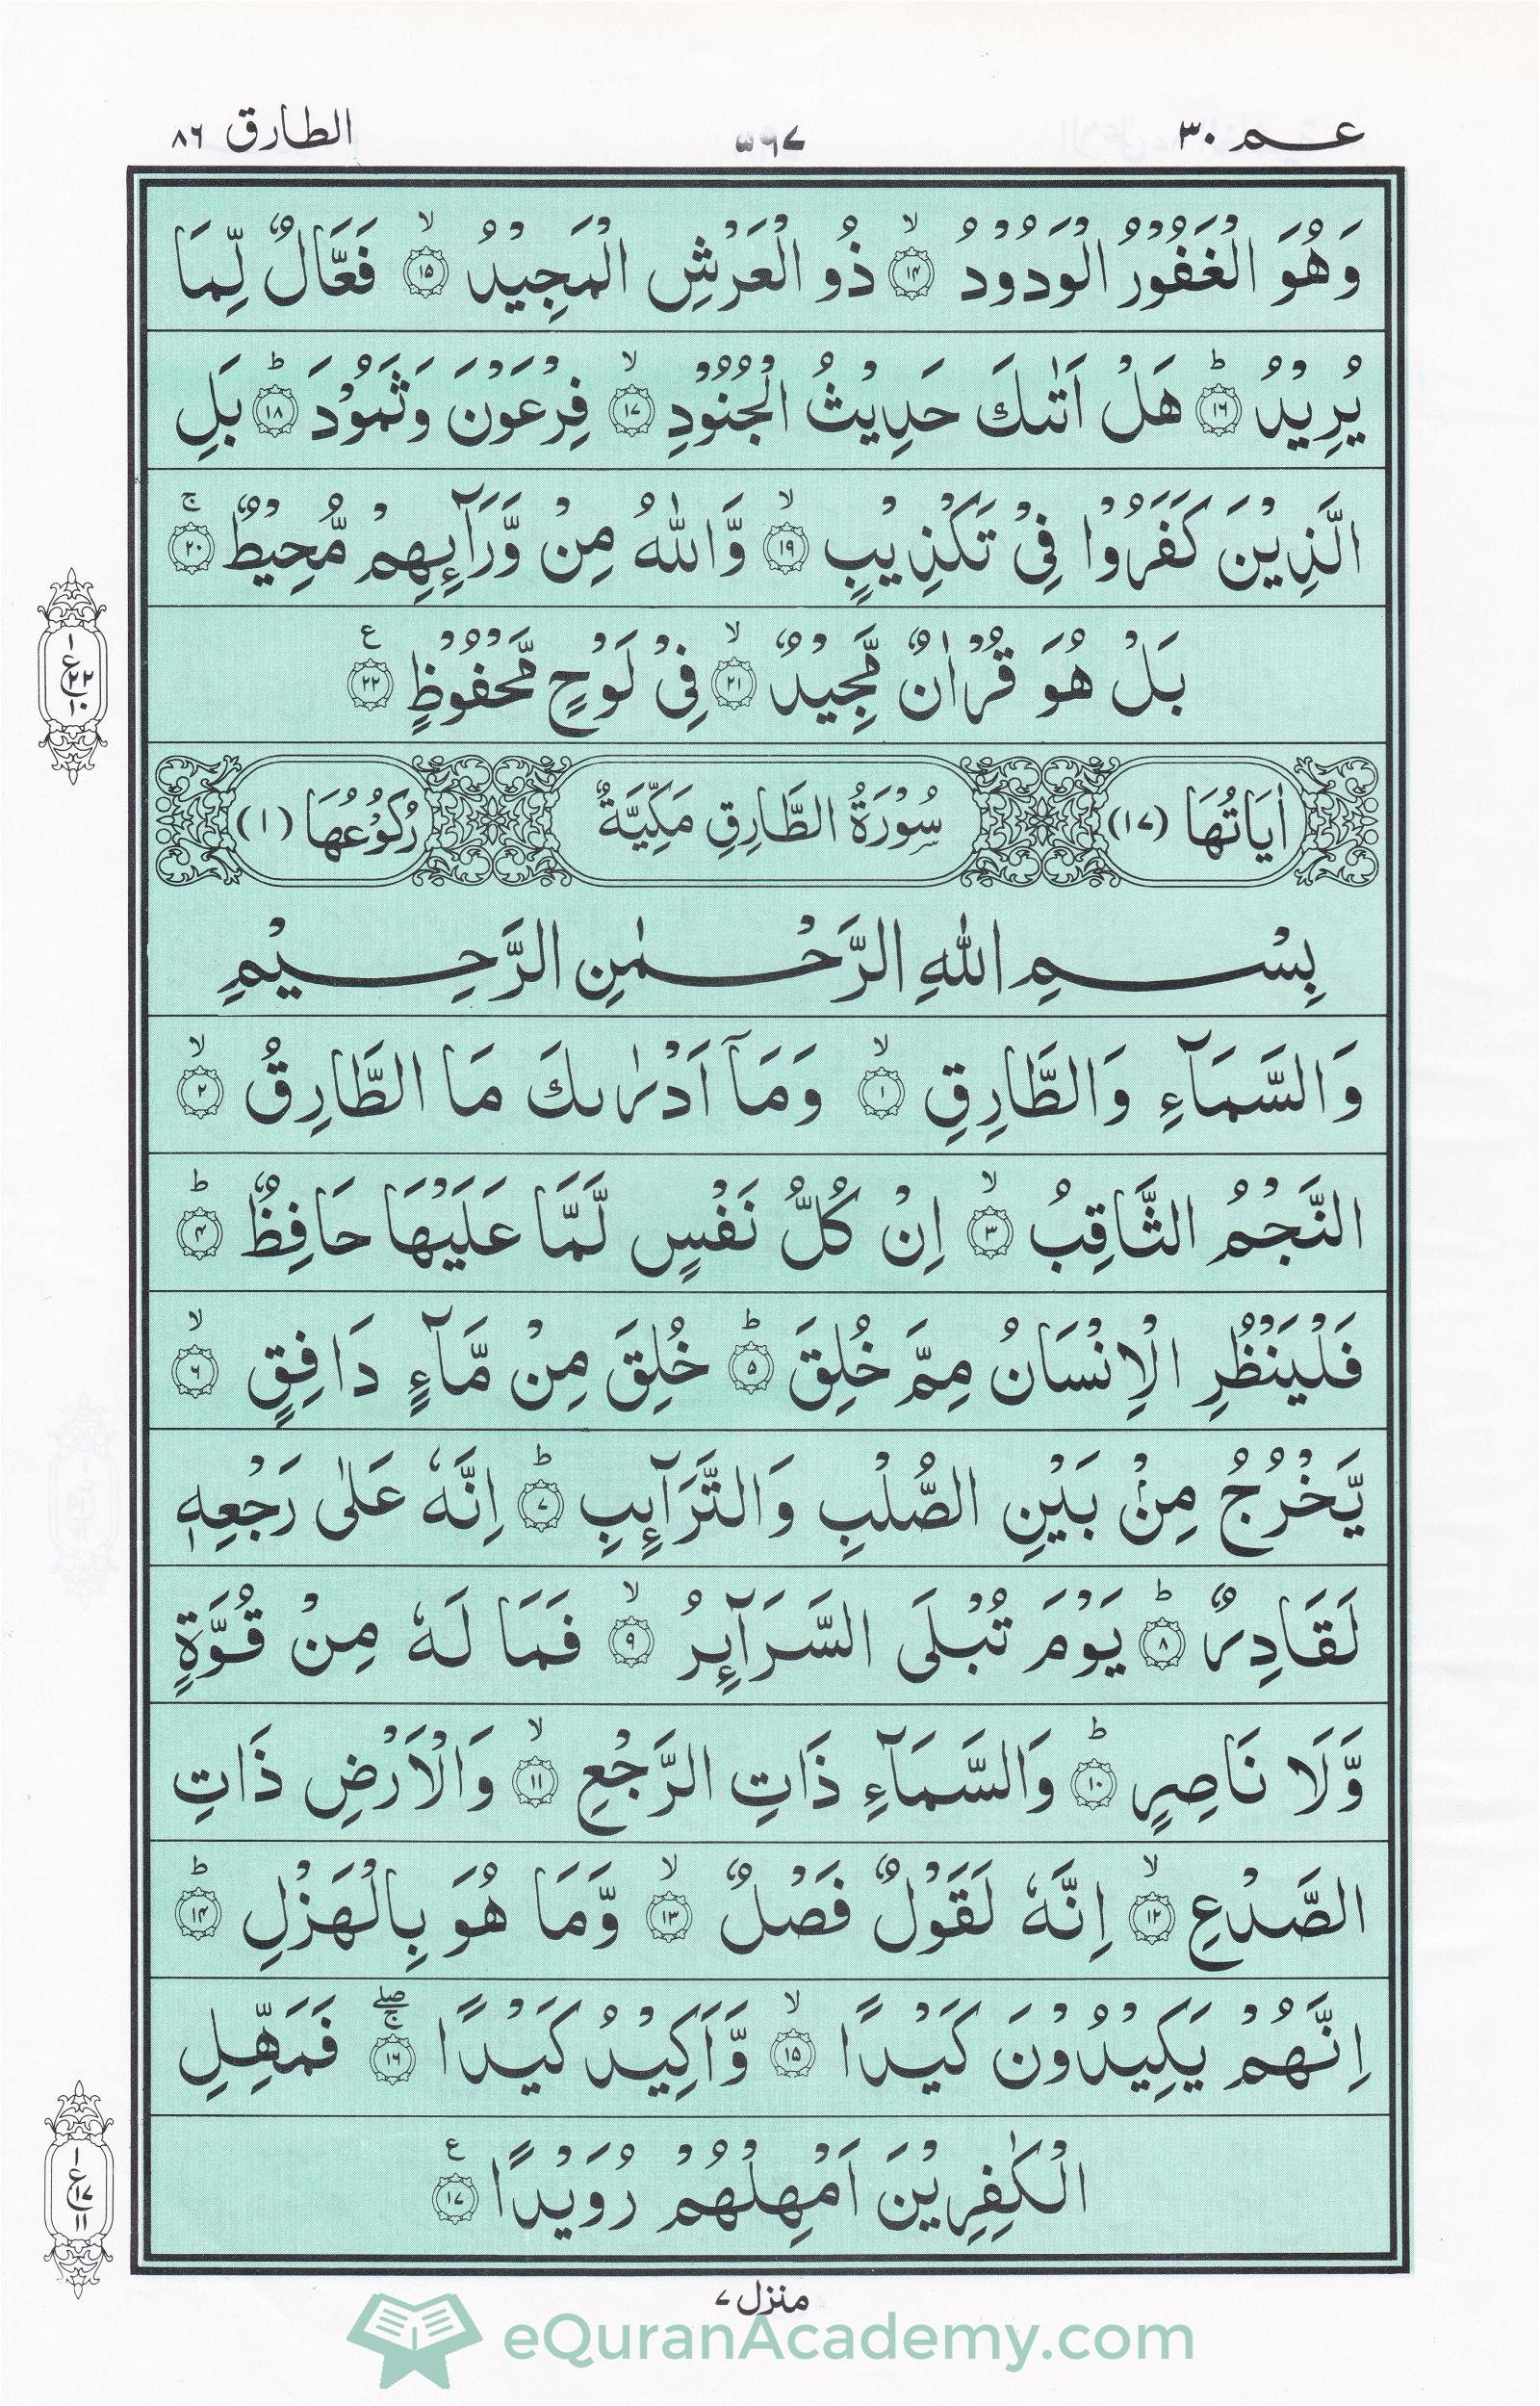 عـم ٣٠ ٥٦٧ الطارق ٨٦
وَهُوَ الْغَفُوْرُ الْوَدُوْدُ ۙ﴿١٤﴾ ذُو الْعَرْشِ الْمَجِيْدُ ۙ﴿١٥﴾ فَعَّالٌ لِّمَا
يُرِيْدُ ؕ﴿١٦﴾ هَلْ اَتٰىكَ حَدِيْثُ الْجُنُوْدِ ۙ﴿١٧﴾ فِرْعَوْنَ وَثَمُوْدَ ؕ﴿١٨﴾ بَلِ
الَّذِيْنَ كَفَرُوْا فِيْ تَكْذِيْبٍ ۙ﴿١٩﴾ وَّاللّٰهُ مِنْ وَّرَآئِهِمْ مُّحِيْطٌ ۚ﴿٢٠﴾
بَلْ هُوَ قُرْاٰنٌ مَّجِيْدٌ ۙ﴿٢١﴾ فِيْ لَوْحٍ مَّحْفُوْظٍ ﴿٢٢﴾ ع
اٰيَاتُهَا (١٧) سُوْرَةُ الطَّارِقِ مَكِّيَّةٌ رُكُوْعُهَا (١)
بِسْمِ اللّٰهِ الرَّحْمٰنِ الرَّحِيْمِ
وَالسَّمَآءِ وَالطَّارِقِ ۙ﴿١﴾ وَمَآ اَدْرٰىكَ مَا الطَّارِقُ ۙ﴿٢﴾
النَّجْمُ الثَّاقِبُ ۙ﴿٣﴾ اِنْ كُلُّ نَفْسٍ لَّمَّا عَلَيْهَا حَافِظٌ ؕ﴿٤﴾
فَلْيَنْظُرِ الْاِنْسَانُ مِمَّ خُلِقَ ؕ﴿٥﴾ خُلِقَ مِنْ مَّآءٍ دَافِقٍ ۙ﴿٦﴾
يَّخْرُجُ مِنْۢ بَيْنِ الصُّلْبِ وَالتَّرَآئِبِ ؕ﴿٧﴾ اِنَّهٗ عَلٰى رَجْعِهٖ
لَقَادِرٌ ؕ﴿٨﴾ يَوْمَ تُبْلَى السَّرَآئِرُ ۙ﴿٩﴾ فَمَا لَهٗ مِنْ قُوَّةٍ
وَّلَا نَاصِرٍ ؕ﴿١٠﴾ وَالسَّمَآءِ ذَاتِ الرَّجْعِ ۙ﴿١١﴾ وَالْاَرْضِ ذَاتِ
الصَّدْعِ ۙ﴿١٢﴾ اِنَّهٗ لَقَوْلٌ فَصْلٌ ۙ﴿١٣﴾ وَّمَا هُوَ بِالْهَزْلِ ؕ﴿١٤﴾
اِنَّهُمْ يَكِيْدُوْنَ كَيْدًا ۙ﴿١٥﴾ وَّاَكِيْدُ كَيْدًا ۚۖ﴿١٦﴾ فَمَهِّلِ
الْكٰفِرِيْنَ اَمْهِلْهُمْ رُوَيْدًا ﴿١٧﴾ ع
١ ع ٢٢ ١٠
١ ع ١٧ ١١
منزل ٧
eQuranAcademy.com